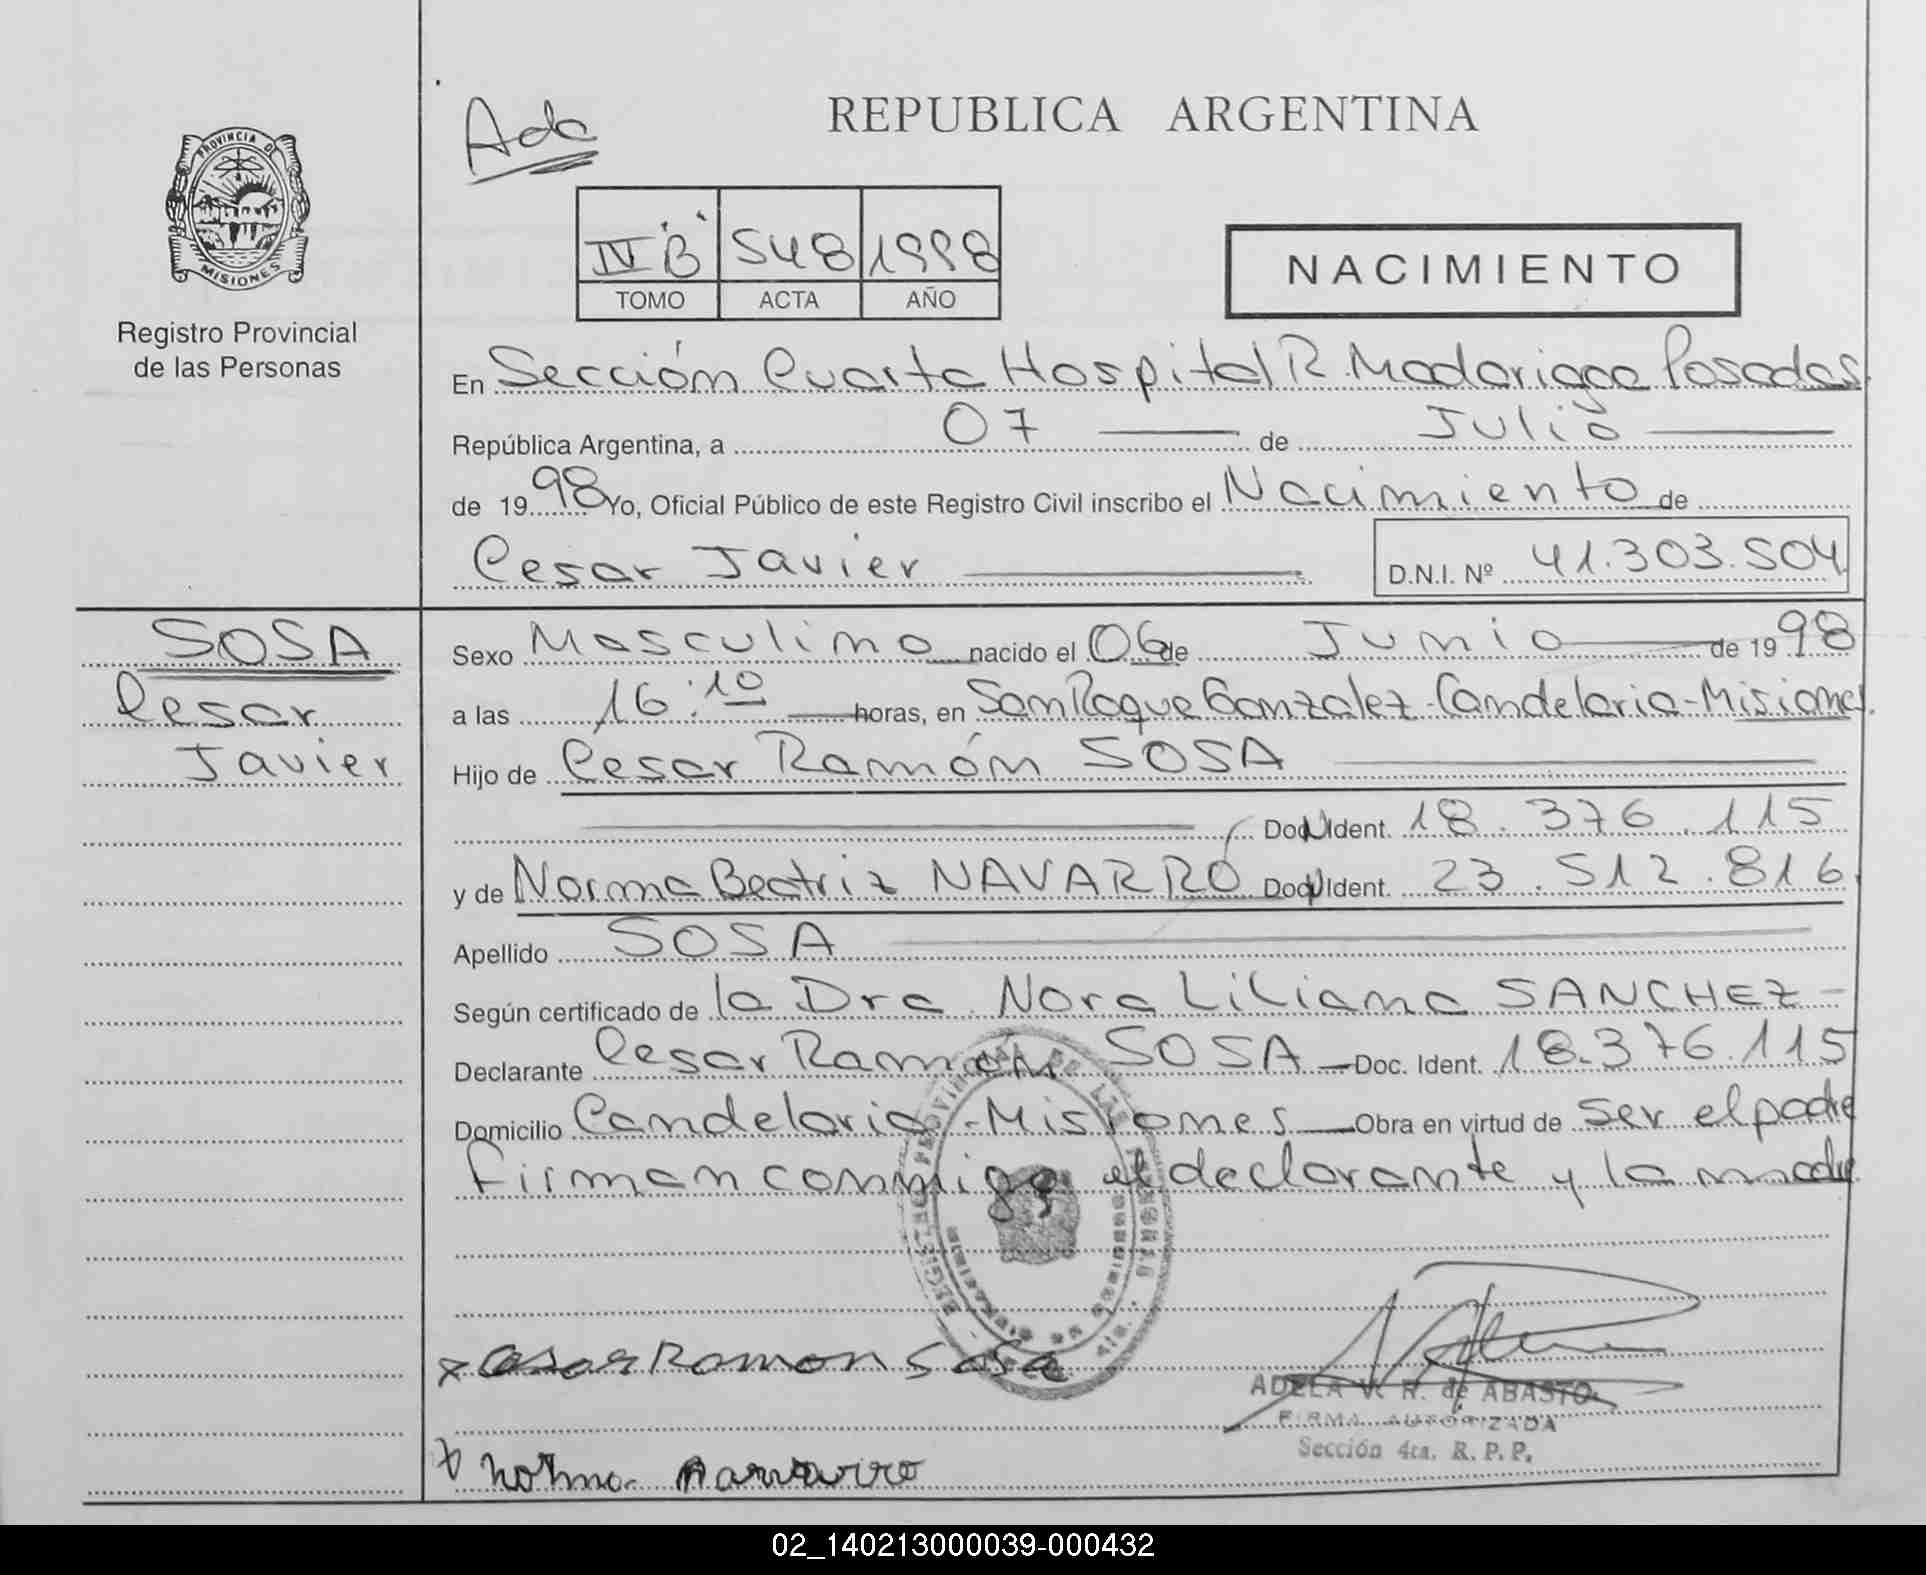 Ada
REPUBLICA ARGENTINA
PROVINCIA DE
MISIONES
Registro Provincial
de las Personas
IV "B" 548 1998
TOMO ACTA AÑO
NACIMIENTO
En Sección Cuarta Hospital R. Madariaga Posadas
República Argentina, a 07 de Julio
de 1998 Yo, Oficial Público de este Registro Civil inscribo el Nacimiento de
Cesar Javier D.N.I. Nº 41.303.504
SOSA
Cesar
Javier
Sexo Masculino nacido el 06 de Junio de 1998
a las 16:10 horas, en San Roque Gonzalez-Candelaria-Misiones.
Hijo de Cesar Ramón SOSA
Doc. N Ident. 18.376.115
y de Norma Beatriz NAVARRO Doc. N Ident. 23.512.816
Apellido SOSA
Según certificado de la Dra. Nora Liliana SANCHEZ-
Declarante Cesar Ramón SOSA Doc. Ident. 18.376.115
Domicilio Candelaria-Misiones Obra en virtud de ser el padre
firman conmigo el declarante y la madre
REGISTRO PROVINCIAL DE LAS PERSONAS
x Cesar Ramon Sosa
ADELA V. R. de ABASTO
FIRMA AUTORIZADA
Sección 4ta. R. P. P.
x Norma Navarro
02_140213000039-000432